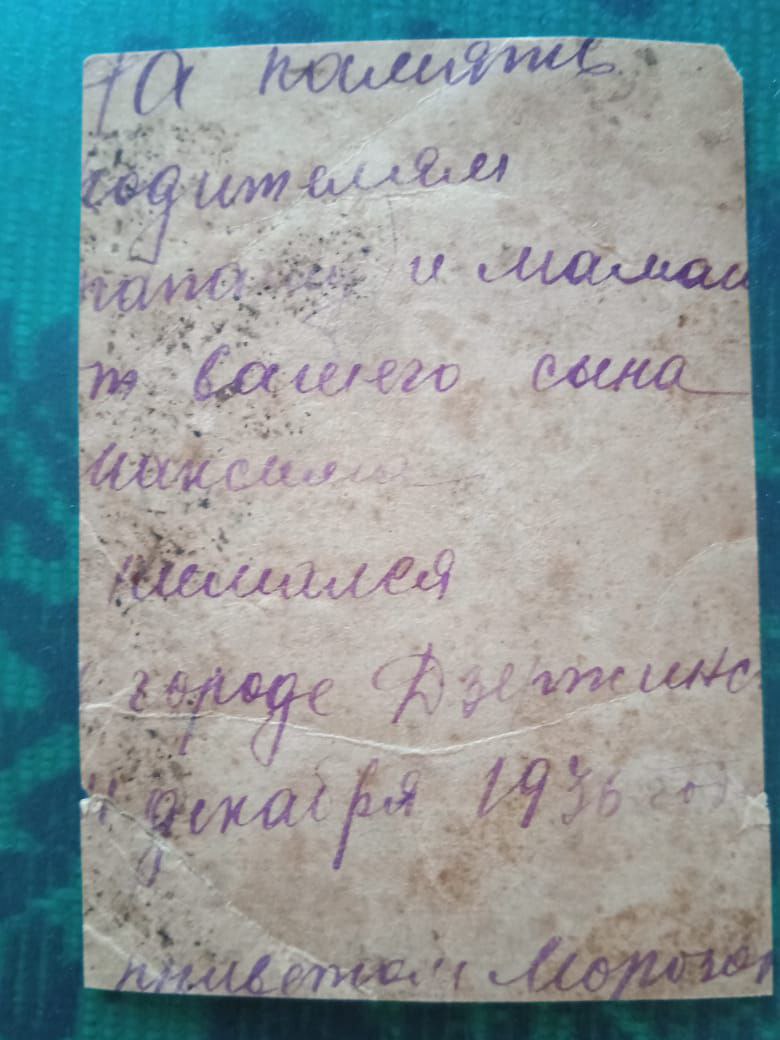 На память
родителям
папаш и мамаш
т вашего сына
Максима
нимался
в городе Дзержинс
декабря 1936 год
приветом Морозов